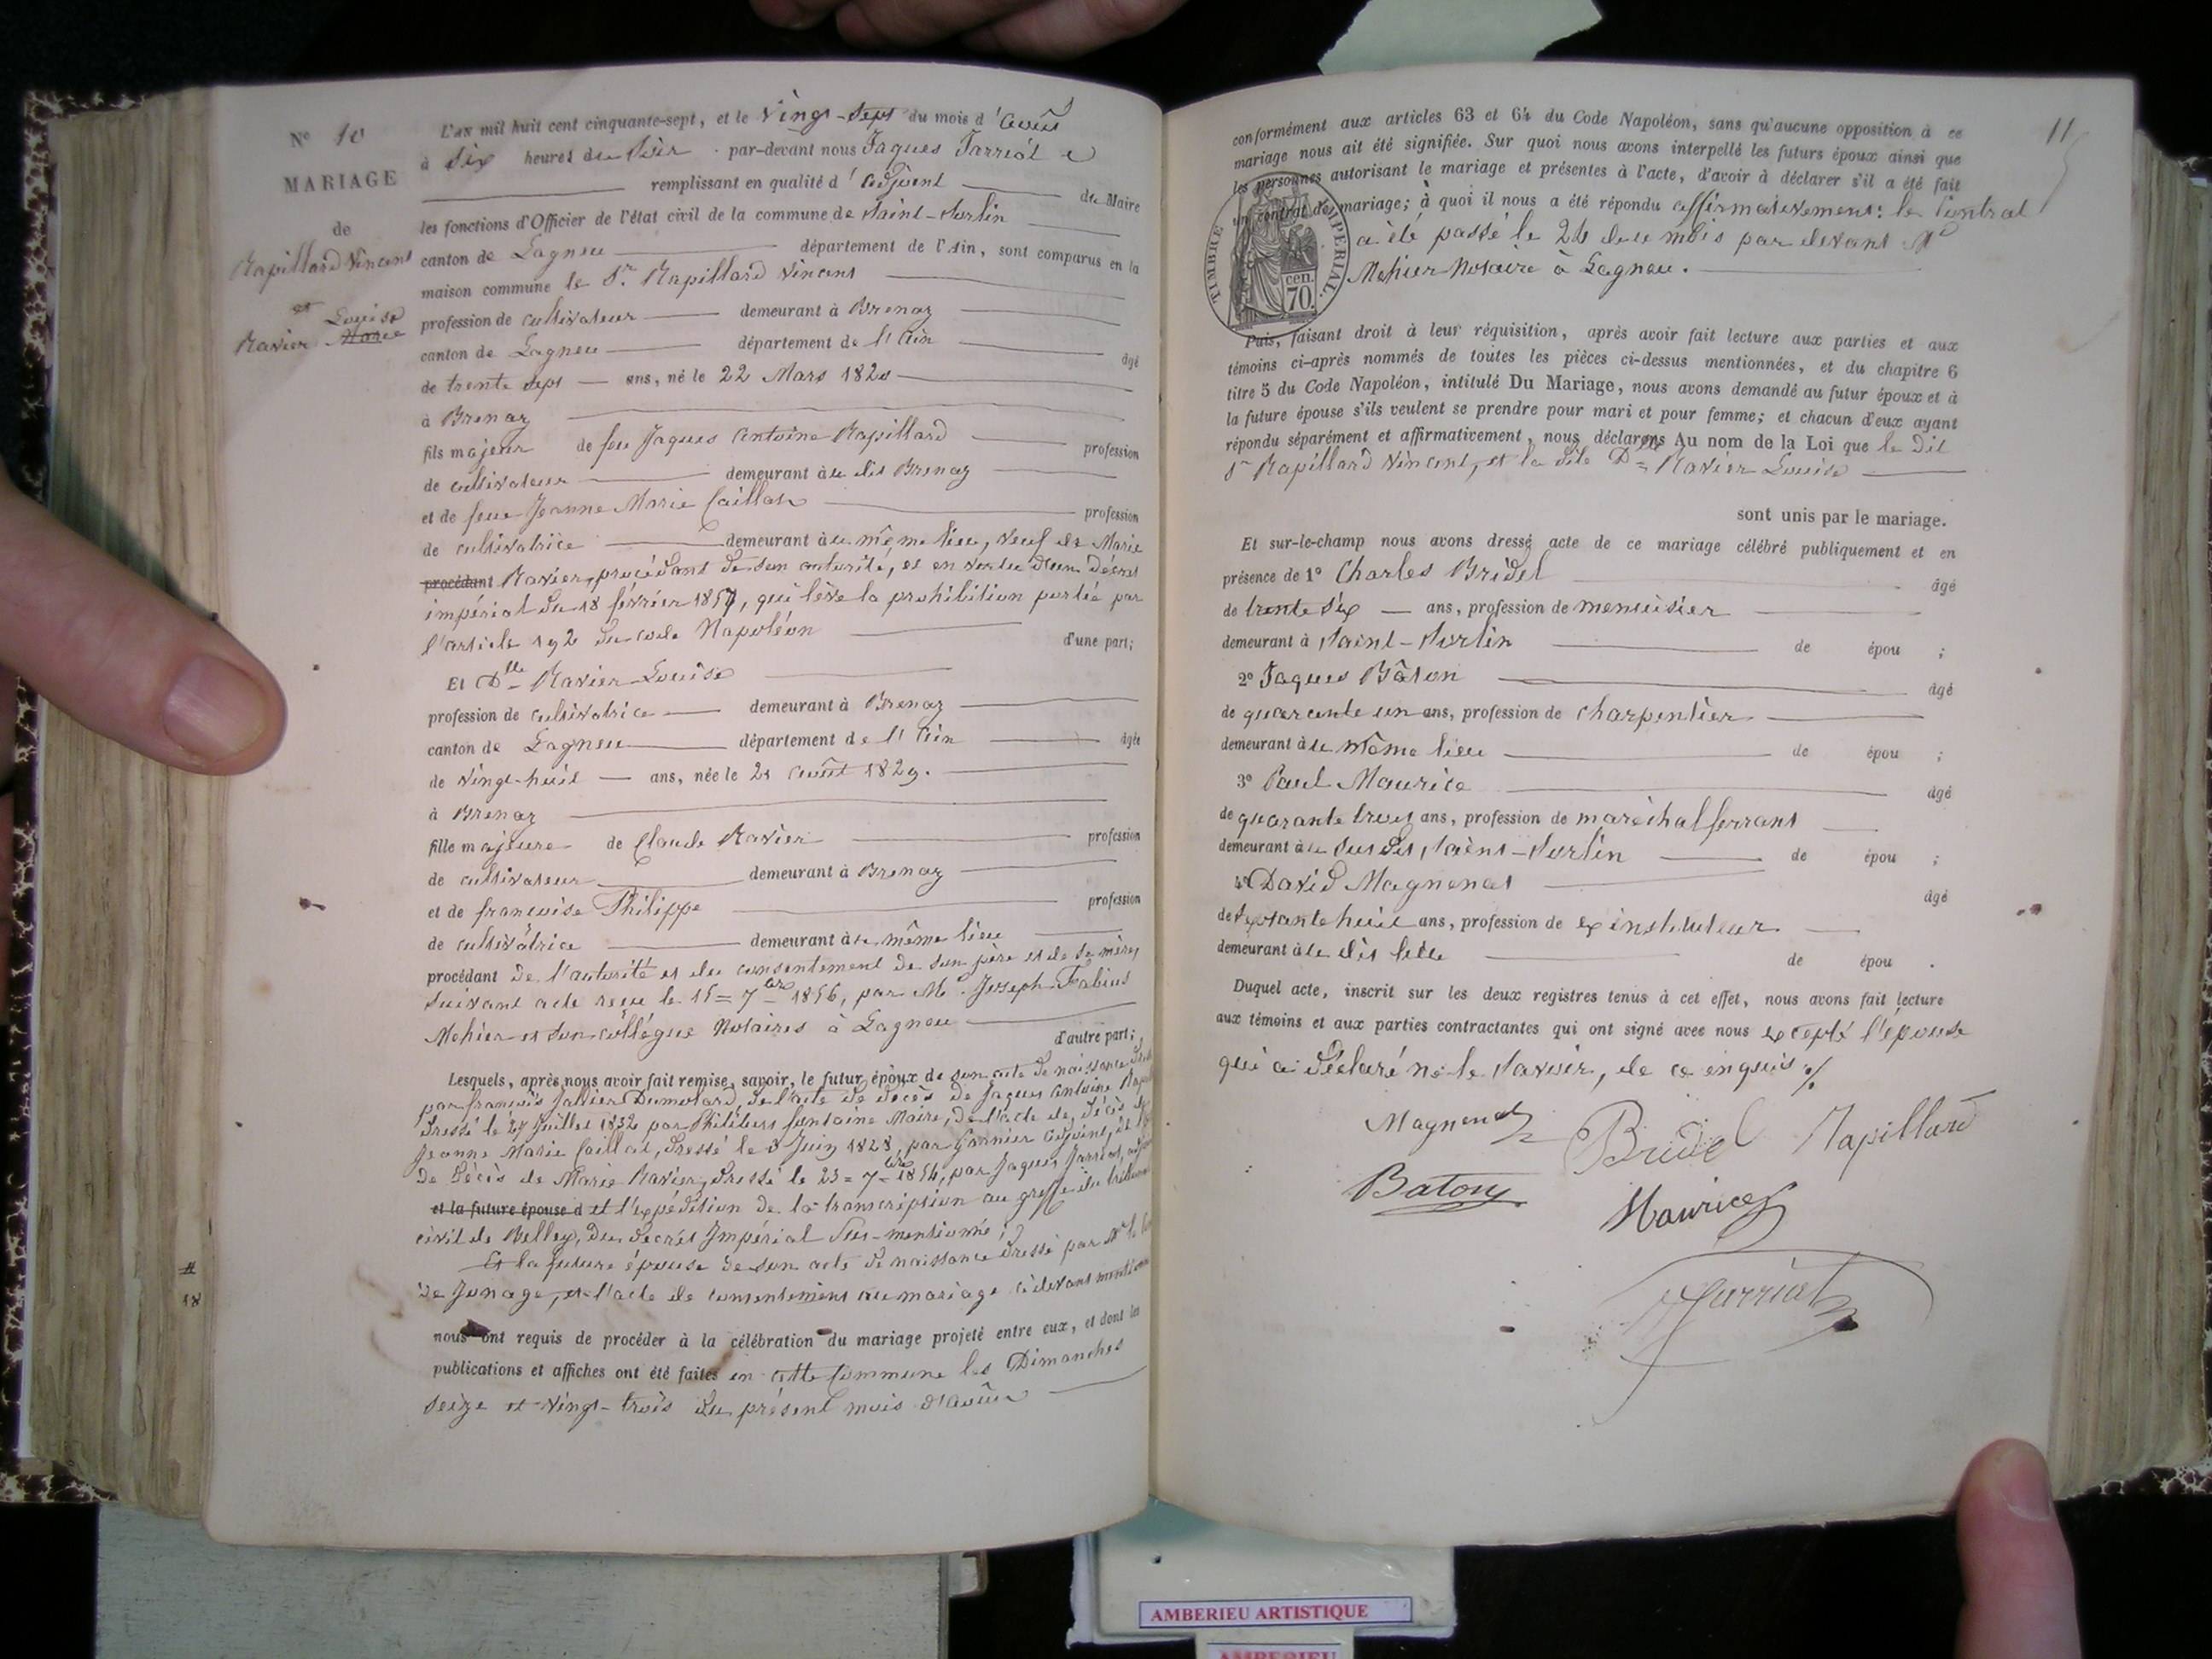 N° 10
MARIAGE
de
Rapillard Vincent
et Louise
Ravier Marie
L'an mil huit cent cinquante-sept, et le Vingt-Sept du mois d'Août
à Six heures du Soir par-devant nous Jaques Jarriot
remplissant en qualité d'adjoint de Maire
les fonctions d'Officier de l'état civil de la commune de Saint-Sorlin
canton de Lagneu département de l'Ain, sont comparus en la
maison commune le Sr. Rapillard Vincent
profession de cultivateur demeurant à Brenaz
canton de Lagneu département de l'Ain âgé
de trente sept ans, né le 22 Mars 1820
à Brenaz
fils majeur de feu Jaques Antoine Rapillard profession
de cultivateur demeurant au dit Brenaz
et de feue Jeanne Marie Caillat profession
de cultivatrice demeurant au même lieu, veuf de Marie
procédant Ravier, procédant de son autorité, et en vertu d'un décret
impérial du 18 février 1857, qui lève la prohibition portée par
l'article 192 du code Napoléon d'une part;
Et Dlle Ravier Louise
profession de cultivatrice demeurant à Brenaz
canton de Lagneu département de l'Ain âgée
de vingt-huit ans, née le 21 Août 1829.
à Brenaz
fille majeure de Claude Ravier profession
de cultivateur demeurant à Brenaz
et de françoise Philippe profession
de cultivatrice demeurant au même lieu
procédant de l'autorité et du consentement de son père et de sa mère,
suivant acte reçu le 15 = 7bre 1856, par Me Joseph Fabius
Mehier et son collégue Notaires à Lagneu
d'autre part;
Lesquels, après nous avoir fait remise, savoir, le futur époux de son acte de naissance
par françois Dumolard, de l'acte de décès de Jaques Antoine
dressé le 27 Juillet 1832 par Philibert fontaine Maire, de l'acte de décès de
Jeanne Marie Caillat, dressé le 8 Juin 1828, par Garnier adjoint,
de décès de Marie Ravier, dressé le 23 = 7bre 1854, par Jaques Jarriot,
et la future épouse d et l'expédition de la transcription au greffe du tribunal
civil de Belley, du décret Impérial sus-mentionné;
Et la future épouse de son acte de naissance dressé par
de Jonage, et l'acte de consentement au mariage ci devant
nous ont requis de procéder à la célébration du mariage projeté entre eux, et dont les
publications et affiches ont été faites en cette Commune les Dimanches
seize et vingt-trois du présent mois d'août
18
11
conformément aux articles 63 et 64 du Code Napoléon, sans qu'aucune opposition à ce
mariage nous ait été signifiée. Sur quoi nous avons interpellé les futurs époux ainsi que
les personnes autorisant le mariage et présentes à l'acte, d'avoir à déclarer s'il a été fait
un contrat de mariage; à quoi il nous a été répondu affirmativement: le Contrat
a été passé le 24 de ce mois par devant Me
Mehier Notaire à Lagneu.
TIMBRE IMPÉRIAL.
70 cen.
Puis, faisant droit à leur réquisition, après avoir fait lecture aux parties et aux
témoins ci-après nommés de toutes les pièces ci-dessus mentionnées, et du chapitre 6
titre 5 du Code Napoléon, intitulé Du Mariage, nous avons demandé au futur époux et à
la future épouse s'ils veulent se prendre pour mari et pour femme; et chacun d'eux ayant
répondu séparément et affirmativement, nous déclarons Au nom de la Loi que le dit
Sr Rapillard Vincent, et la dite Dlle Ravier Louise
sont unis par le mariage.
Et sur-le-champ nous avons dressé acte de ce mariage célébré publiquement et en
présence de 1° Charles Bridel âgé
de trente six ans, profession de menuisier
demeurant à Saint-Sorlin de épou ;
2° Jaques Bâton âgé
de quarante un ans, profession de charpentier
demeurant à le même lieu de épou ;
3° Paul Maurice âgé
de quarante trois ans, profession de maréchal ferrant
demeurant à le susdit, Saint-Sorlin de épou ;
4° David Magnenat âgé
de septante huit ans, profession de ex instituteur
demeurant à le dit lieu de épou .
Duquel acte, inscrit sur les deux registres tenus à cet effet, nous avons fait lecture
aux témoins et aux parties contractantes qui ont signé avec nous excepté l'épouse
qui a déclaré ne le savoir, de ce enquis %
Magnenat Bridel Rapillard
Baton
Maurice
Jarriot
AMBERIEU ARTISTIQUE
AMBERIEU